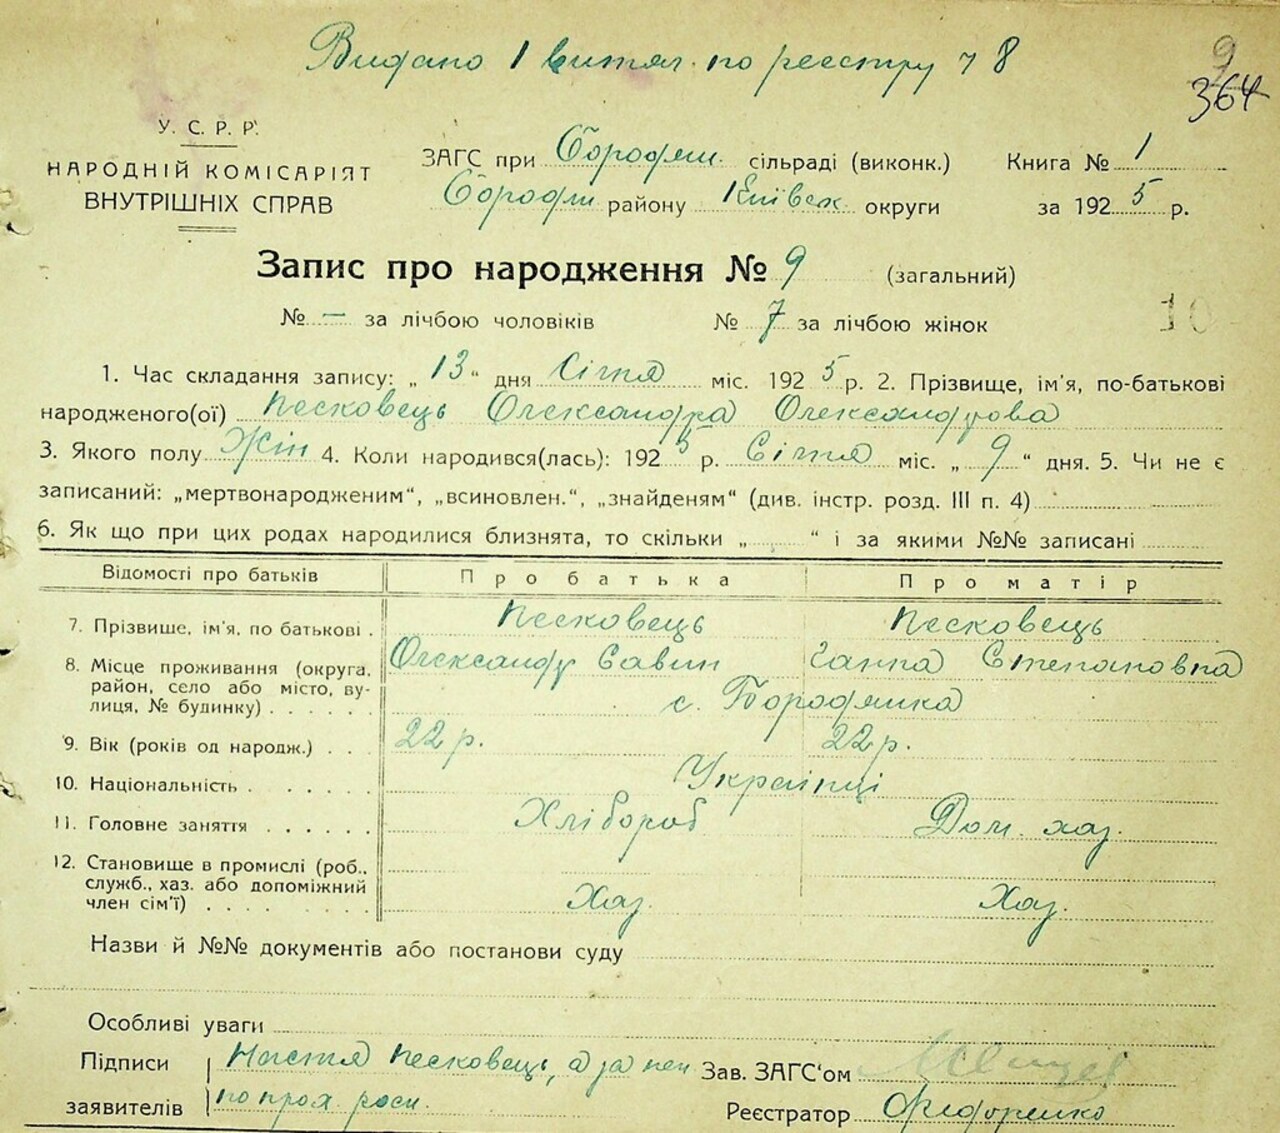 Видано 1 витяг. по реєстру ч 8
9
364
У. С. Р. Р.
НАРОДНІЙ КОМІСАРІЯТ
ВНУТРІШНІХ СПРАВ
ЗАГС при Бородян. сільраді (виконк.) Книга № 1
Бородян району Київськ. округи за 1925 р.
Запис про народження № 9 (загальний)
№ — за лічбою чоловіків № 7 за лічбою жінок
10
1. Час складання запису: „13“ дня Січня міс. 1925 р. 2. Прізвище, ім'я, по-батькові
народженого(ої) Песковець Олександра Олександрова
3. Якого полу Жін 4. Коли народився(лась): 1925 р. Січня міс. „9“ дня. 5. Чи не є
записаний: „мертвонародженим“, „всиновлен.“, „знайденям“ (див. інстр. розд. III п. 4)
6. Як що при цих родах народилися близнята, то скільки „ “ і за якими №№ записані
Відомості про батьків Про батька Про матір
7. Прізвише, ім'я, по батькові . Песковець Песковець
Олександр Савин Ганна Степановна
8. Місце проживання (округа,
район, село або місто, ву-
лиця, № будинку) . . . . . . с. Бородянка
9. Вік (років од народж.) . . . 22 р. 22 р.
10. Національність . . . . . . Українці
11. Головне заняття . . . . . . Хлібороб Дом. хаз.
12. Становище в промислі (роб.,
служб., хаз. або допоміжний
член сім'ї) . . . . . . . . Хаз. Хаз.
Назви й №№ документів або постанови суду
Особливі уваги
Підписи Настя Песковець, а за неї Зав. ЗАГС'ом
заявителів по прох. роси. Реєстратор Федоренко